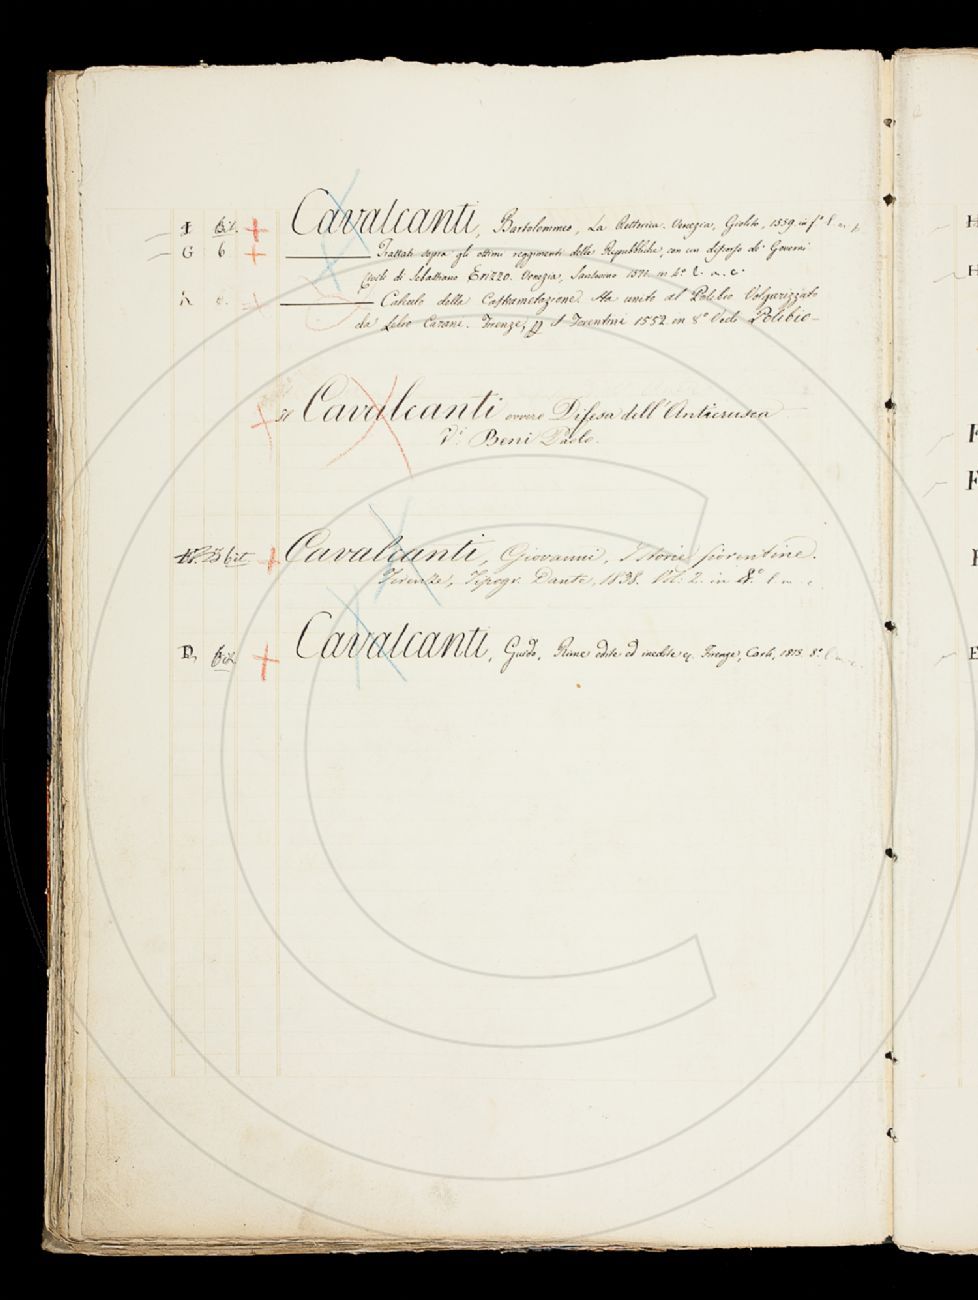 I 6 + Cavalcanti, Bartolommeo, La Rettorica. Venezia, Giolito, 1559. in f.º l. m.
G 6 + ——— Trattati sopra gli ottimi reggimenti delle Repubbliche, con un discorso de' Governi
Civili di Sebastiano Erizzo. Venezia, Sansovino 1571. in 4.º l. a. c.
——— Calcolo della Castrametazione. Sta unito al Polibio Volgarizzato
da Lelio Carani. Firenze, pp. il Torentini 1552. in 8.º Vedi Polibio—
+ Il Cavalcanti ovvero Difesa dell'Anticrusca
Vi Beni Paolo.
+ Cavalcanti, Giovanni, Istorie fiorentine.
Firenze, Tipogr. Dante, 1838. Vol. 2. in 8.º l. m.
D, + Cavalcanti, Guido. Rime edite ed inedite ec. Firenze, Carli, 1813. 8.º